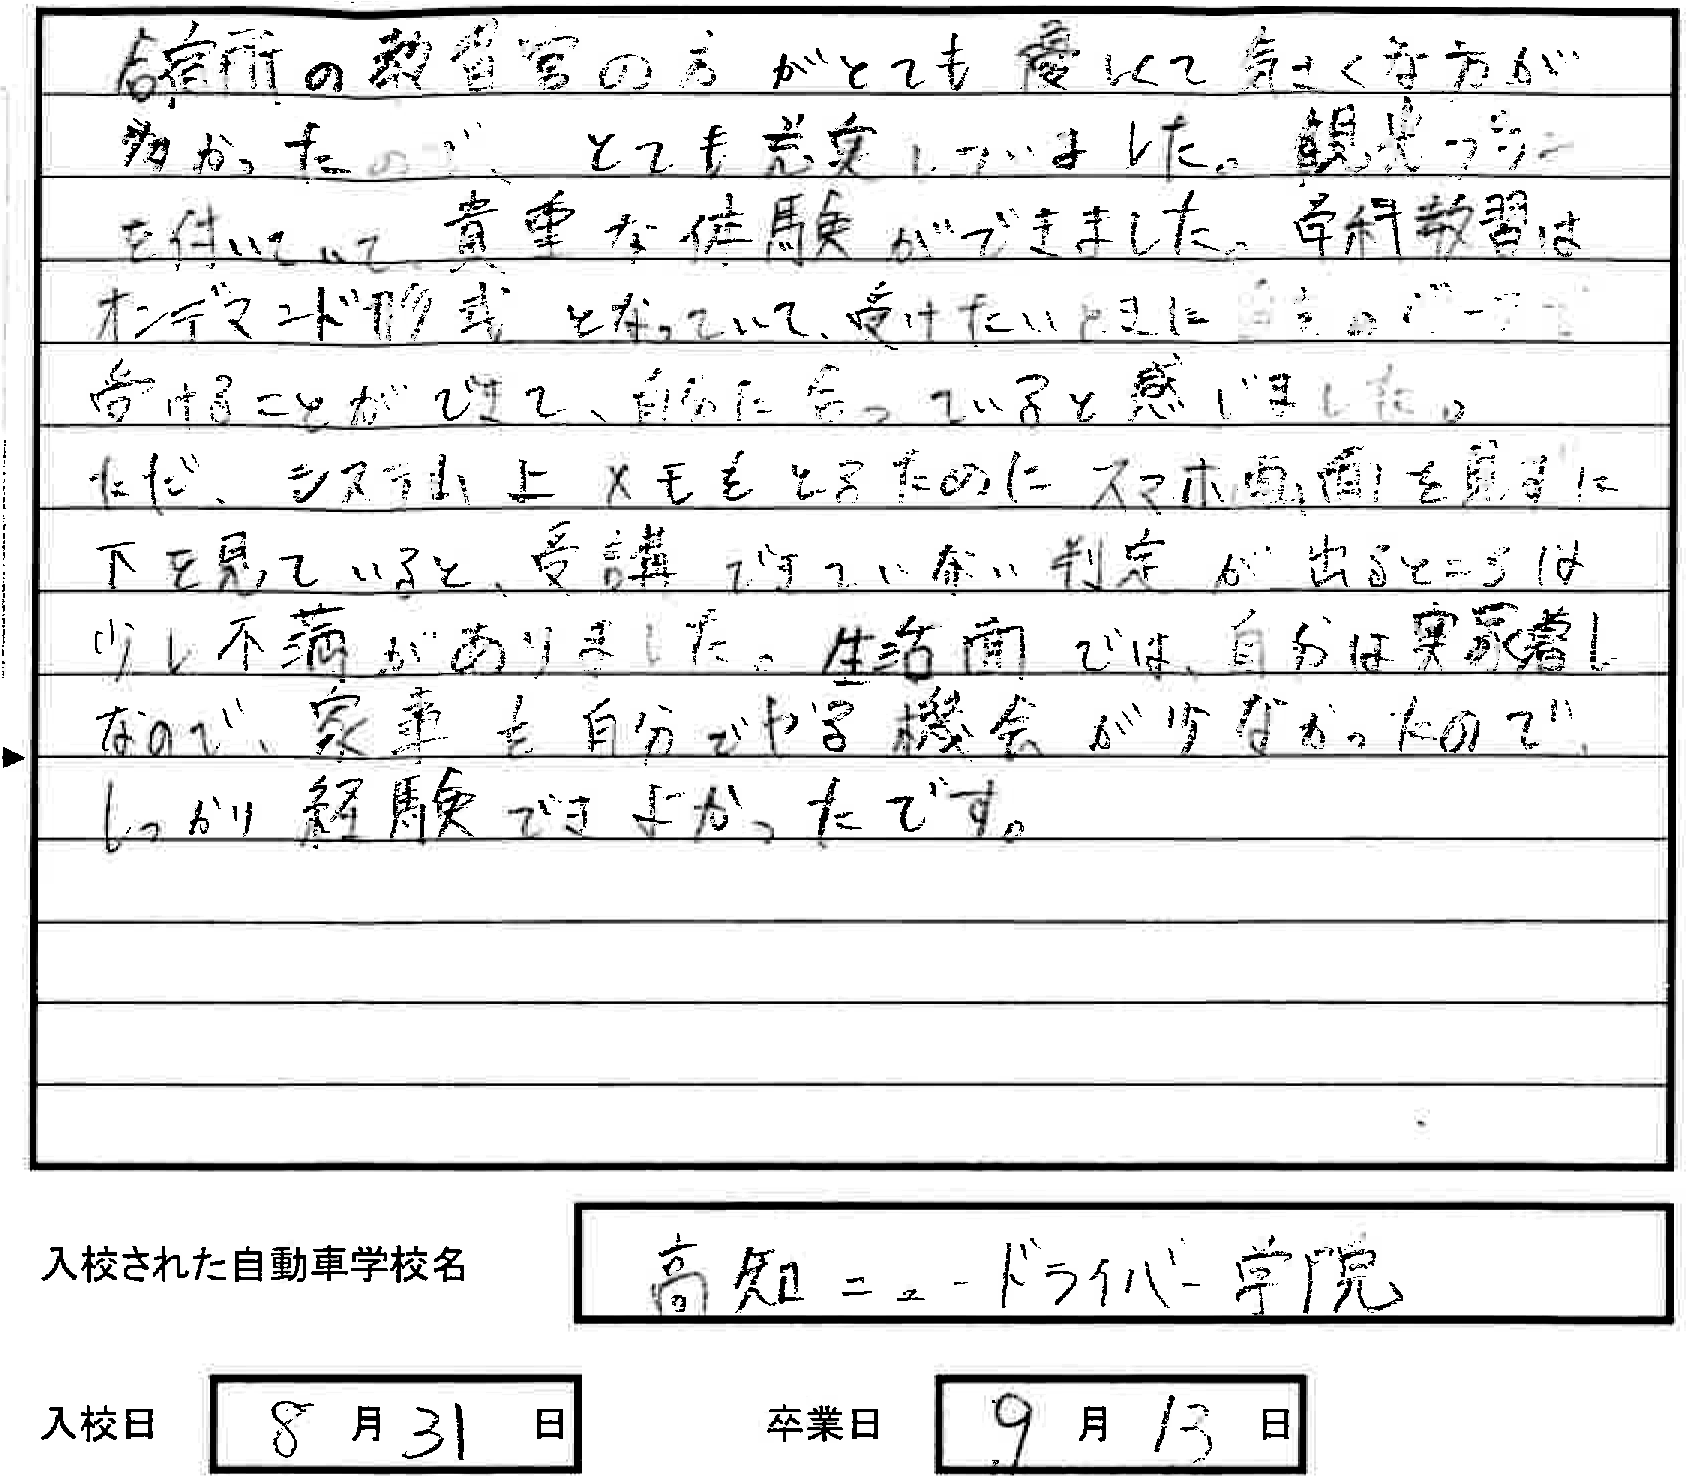 合宿所の教習官の方がとても優しくて気さくな方が
多かったので、とても充実していました。観光プラン
を付いていて、貴重な体験ができました。学科教習は
オンデマンド形式となっていて、受けたいときに自分のペースで
受けることができて、自分に合っていると感じました。
ただ、システム上メモをとるためにスマホ画面を見ずに
下を見ていると、受講できていない判定が出るところは
少し不満がありました。生活面では、自分は実家暮し
なので、家事も自分でやる機会が少なかったので、
しっかり経験できよかったです。
入校された自動車学校名 高知ニュードライバー学院
入校日 8月31日 卒業日 9月13日